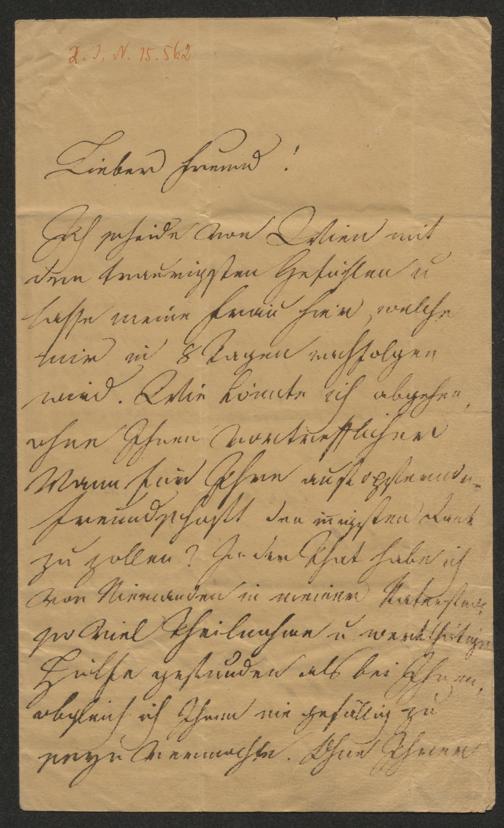 Z. I. N. 15.562
Lieber Freund!
Ich scheide von Wien mit
den traurigsten Gefühlen u
lasse meine Frau hier, welche
mir in 8 Tagen nachfolgen
wird. Wie könnte ich abgehen,
ohne Ihnen vortrefflicher
Mann für Ihre aufopfernde
Freundschaft den innigsten Dank
zu zollen? In der That habe ich
von Niemanden in meiner Vaterstadt
so viel Theilnahme u werkthätige
Hülfe gefunden als bei Ihnen,
obgleich ich Ihnen nie gefällig zu
seyn vermochte. Ohne Ihnen